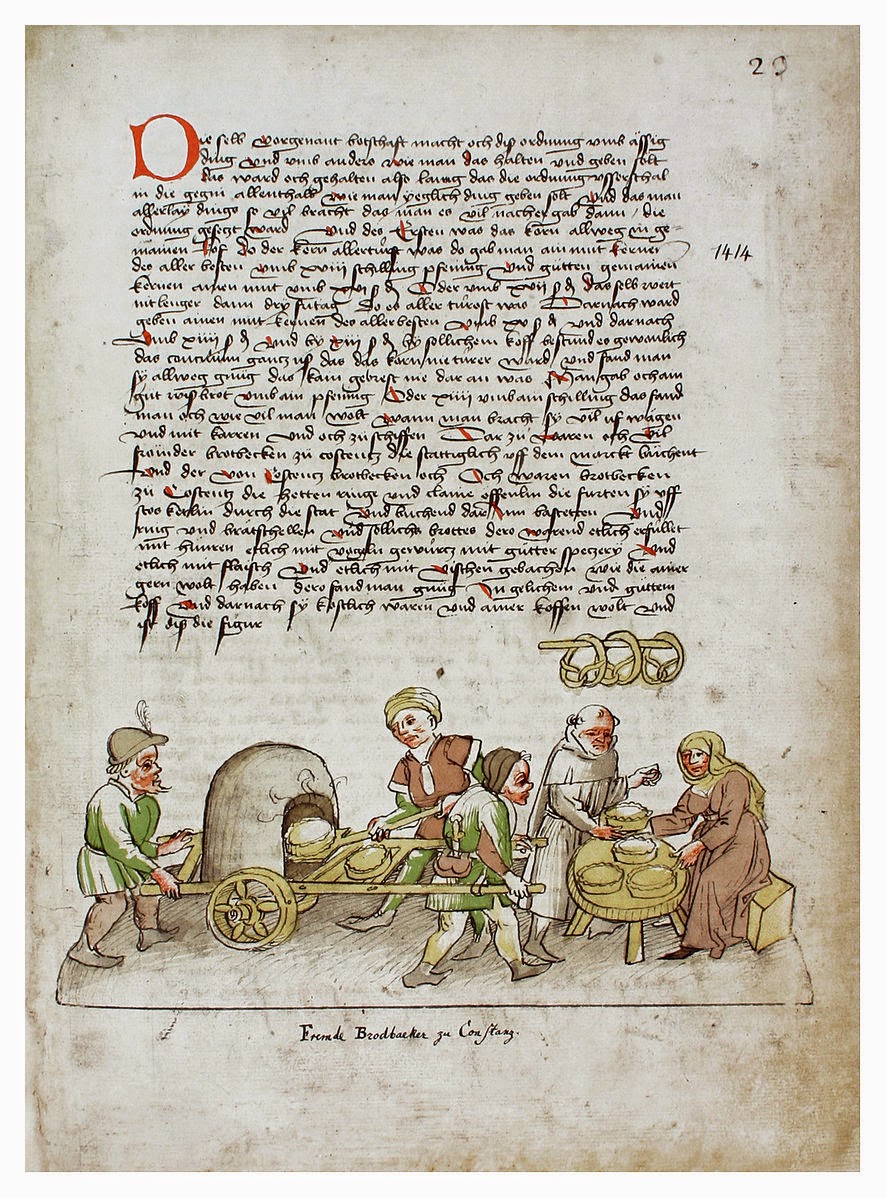 23
Die selb vorgenant botschaft macht och diß ordnung umb ässig
ding und umb anders wie man das halten und geben solt
das ward och gehalten also lang das die ordnung
in die gegni allenthalb wie man yeglich ding geben solt Und das man
allerlay dings so vil bracht das man es vil nacher gab dann / die
ordnung gesetzt ward Und des Ersten was das korn allweg in ge=
mainen koff do der kern allertürst was do gab man ain mut kernen
1414
des aller besten umb xviii schilling pfening Und gůtten gemainen
kernen ainen mut umb xvi ß d Oder umb xvii ß d das selb wert
nit lenger dann dry fritag do es aller türost was Darnach ward
geben ainen mut kernen des aller besten umb xv ß d und darnach
Umb xiiii ß d Und by xiii ß d by sollichem koff bestůnd es gewonlich
das concilium gantz us das das korn nie türer ward und fand man
sy allweg gnůg das kain gebrest nie dar an was Man gab och ain
gůt wiß brot umb ain pfening Oder xiiii umb ain schilling das fand
man och wie vil man wolt wann man bracht sy vil uf wägen
und mit karren und och zů schiffen Dar zů waren och vil
frömder brotbecken zů costentz die stättiglich uff dem marckt bůchent
Und der von Costentz brotbecken och Och waren brotbecken
zů Costentz die hetten ringe und claine öffenlin die fůrten sy uff
stos kerlin durch die stat Und bůchend dar inn basteten Und
ring und brätschellen und sollichs brottes dero warend etlich erfüllet
mit hůnren etlich mit vogeln gewürtz mit gůtter spetzery Und
etlich mit flaisch Und etlich mit vischen gebachen wie die ainer
gern wolt haben dero fand man gnůg In gelichem und gůttem
koff Und darnach sy kostlich waren und ainer koffen wolt Und
ist diß die figur
Fremde Brodbaeker zu Constanz.